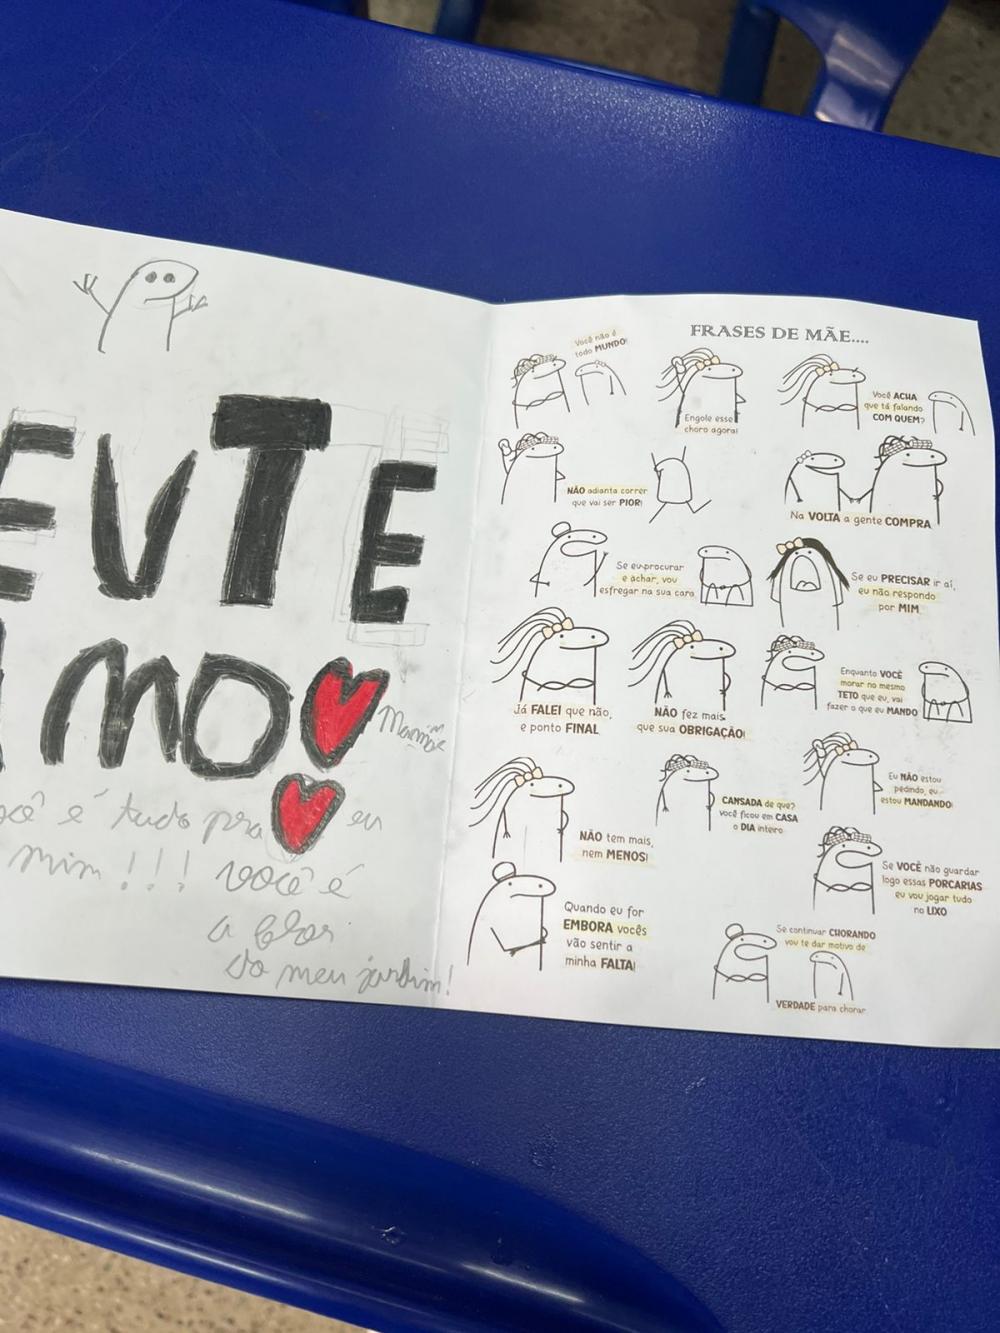 EU TE
AMO
Mamãe
você é tudo pra eu
mim!!! você é
a flor
do meu jardim!
FRASES DE MÃE....
Você não é
todo MUNDO!
Engole esse
choro agora!
Você ACHA
que tá falando
COM QUEM?
NÃO adianta correr
que vai ser PIOR!
Na VOLTA a gente COMPRA
Se eu procurar
e achar, vou
esfregar na sua cara
Se eu PRECISAR ir aí,
eu não respondo
por MIM
Já FALEI que não,
e ponto FINAL
NÃO fez mais
que sua OBRIGAÇÃO!
Enquanto VOCÊ
morar no mesmo
TETO que eu, vai
fazer o que eu MANDO
NÃO tem mais,
nem MENOS!
CANSADA de que?
você ficou em CASA
o DIA inteiro
Eu NÃO estou
pedindo, eu
estou MANDANDO!
Quando eu for
EMBORA vocês
vão sentir a
minha FALTA!
Se VOCÊ não guardar
logo essas PORCARIAS
eu vou jogar tudo
no LIXO
Se continuar CHORANDO
vou te dar motivo de
VERDADE para chorar